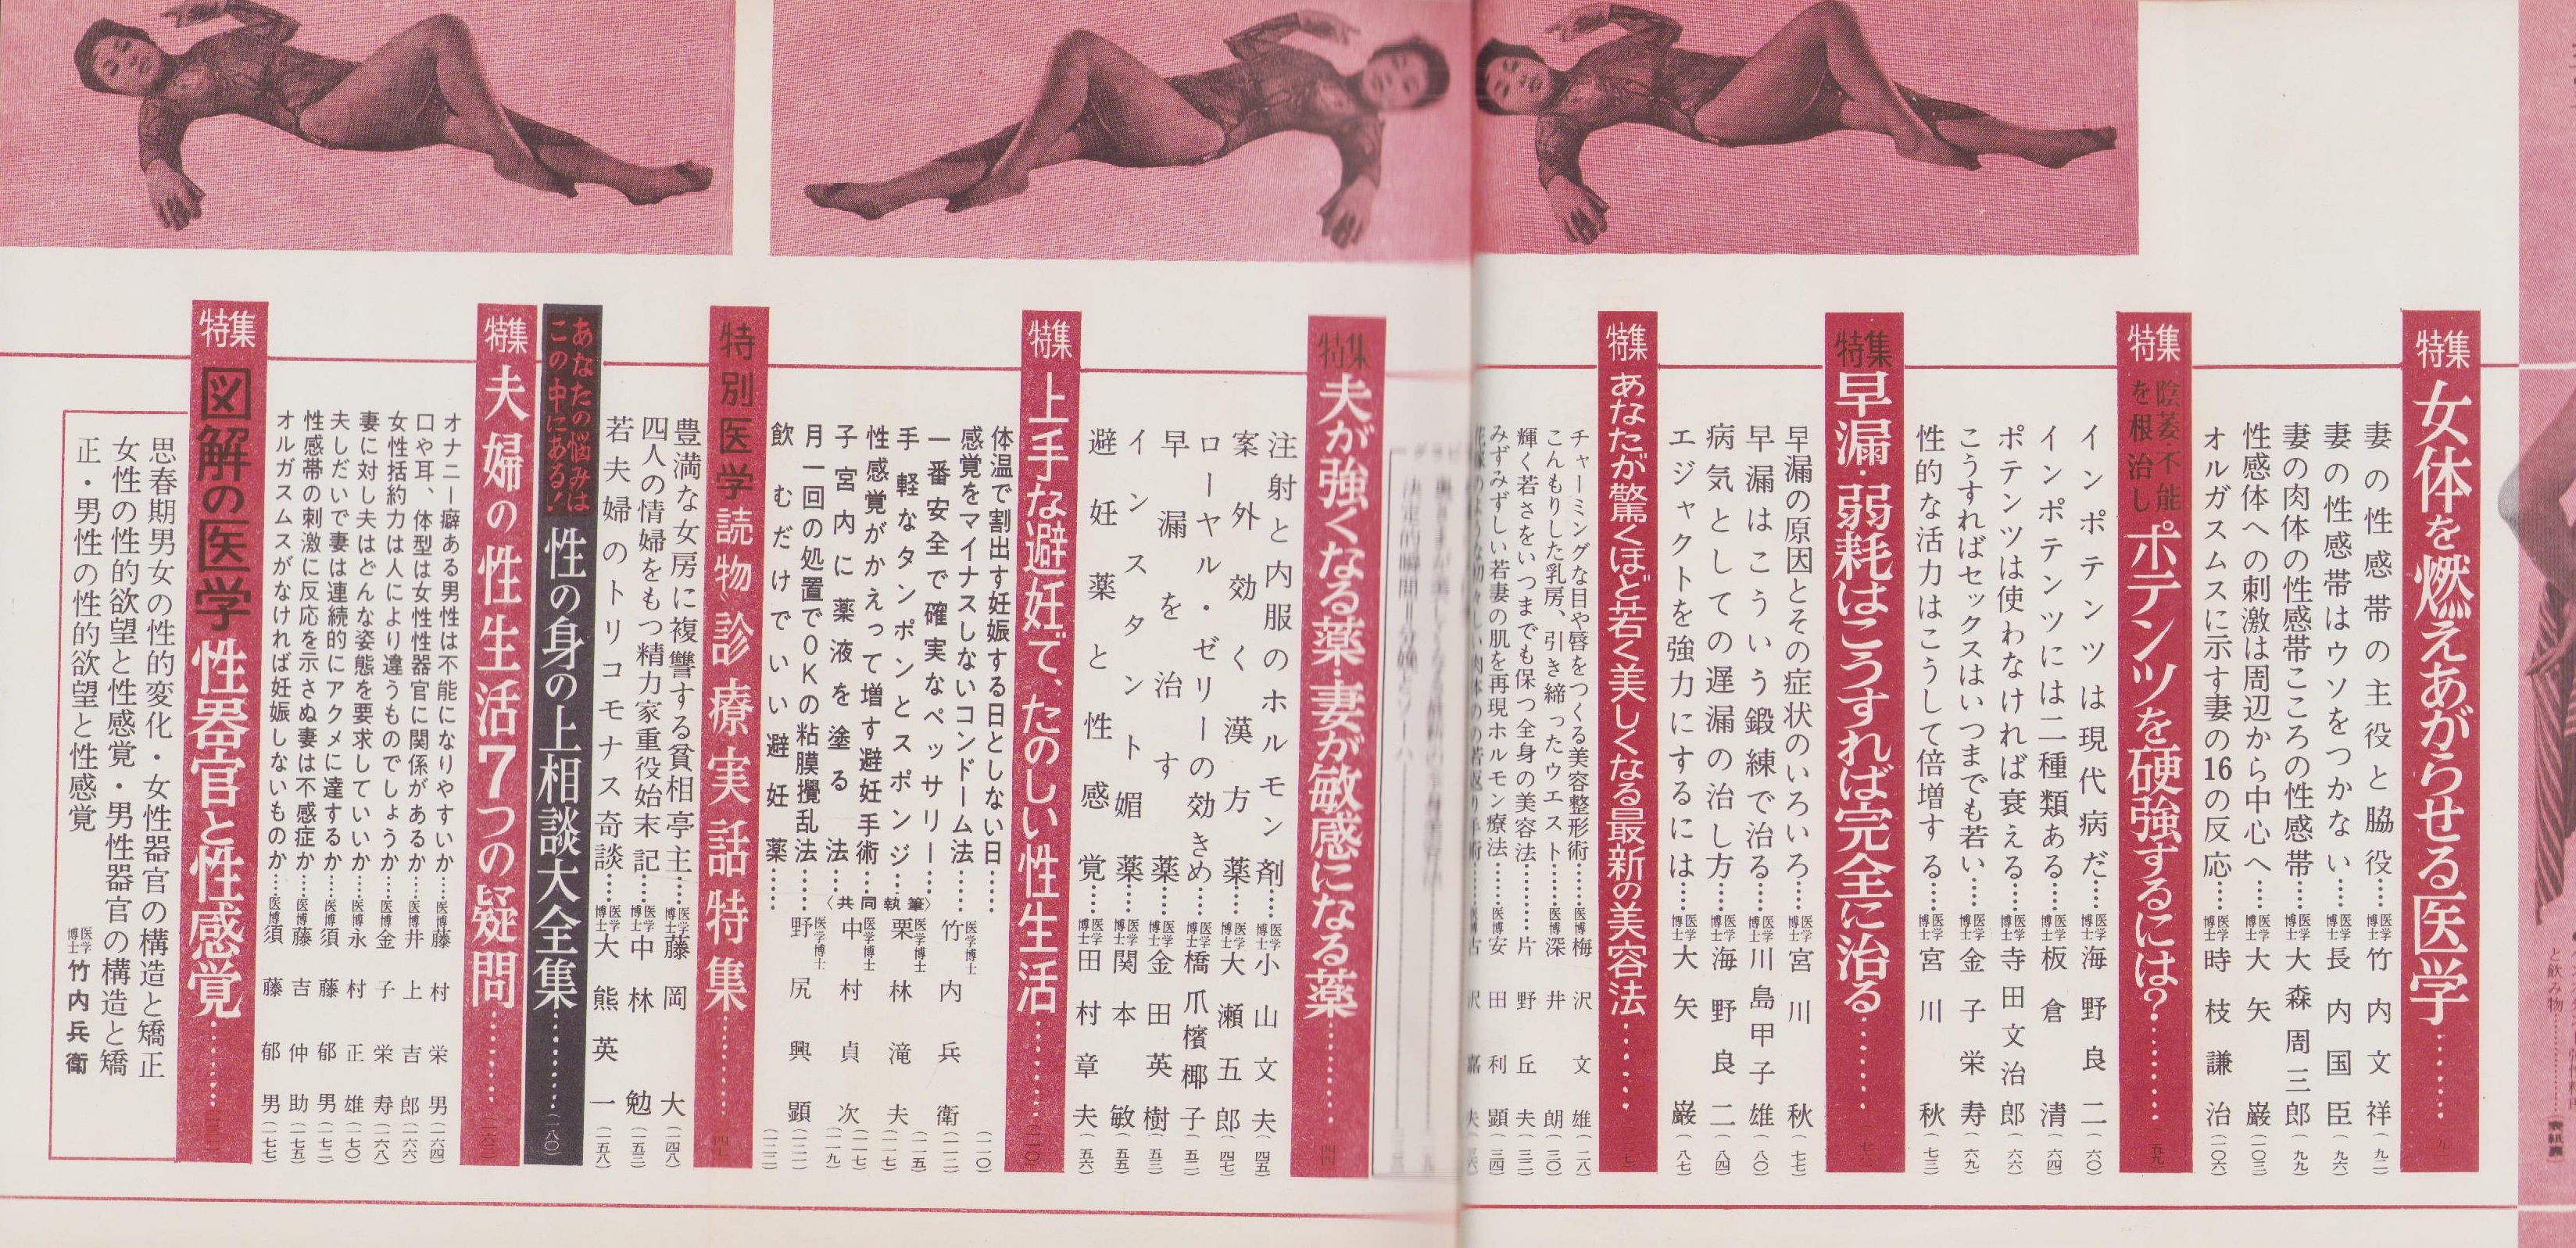 特集 女体を燃えあがらせる医学………
妻の性感帯の主役と脇役……医学博士 竹内文祥(九二)
妻の性感帯はウソをつかない……医学博士 長内国臣(九六)
妻の肉体の性感帯こころの性感帯……医学博士 大森周三郎(九九)
性感体への刺激は周辺から中心へ……医学博士 大矢巌(一〇三)
オルガスムスに示す妻の16の反応……医学博士 時枝謙治(一〇六)
特集 陰萎不能を根治し ポテンツを硬強するには?……(五九)
インポテンツは現代病だ……医学博士 海野良二(六〇)
インポテンツには二種類ある……医学博士 板倉清(六四)
ポテンツは使わなければ衰える……医学博士 寺田文治郎(六六)
こうすればセックスはいつまでも若い……医学博士 金子栄寿(六九)
性的な活力はこうして倍増する……医学博士 宮川秋(七三)
特集 早漏・弱耗はこうすれば完全に治る………(七六)
早漏の原因とその症状のいろいろ……医学博士 宮川秋(七七)
早漏はこういう鍛練で治る……医学博士 川島甲子雄(八〇)
病気としての遅漏の治し方……医学博士 海野良二(八四)
エジャクトを強力にするには……医学博士 大矢巌(八七)
特集 あなたが驚くほど若く美しくなる最新の美容法………
チャーミングな目や唇をつくる美容整形術……医博 梅沢文雄(二八)
こんもりした乳房、引き締ったウエスト……医博 深井朗(三〇)
輝く若さをいつまでも保つ全身の美容法……片野丘夫(三二)
みずみずしい若妻の肌を再現ホルモン療法……医博 安田利顕(三四)
特集 夫が強くなる薬・妻が敏感になる薬………(四四)
注射と内服のホルモン剤……医学博士 小山文夫(四五)
案外効く漢方薬……医学博士 大瀬五郎(四七)
ローヤル・ゼリーの効きめ……医学博士 橋爪檳榔子(五二)
早漏を治す薬……医学博士 金田英樹(五三)
インスタント媚薬……医学博士 関本敏(五五)
避妊薬と性感覚……医学博士 田村章夫(五六)
特集 上手な避妊で、たのしい性生活………(一一〇)
体温で割出す妊娠する日としない日……(一一〇)
感覚をマイナスしないコンドーム法……(一一二)
一番安全で確実なペッサリー……(一一五)
手軽なタンポンとスポンジ……(一一七)
性感覚がかえって増す避妊手術……(一一七)
子宮内に薬液を塗る法……(一一九)
月一回の処置でOKの粘膜攪乱法……(一二一)
飲むだけでいい避妊薬……(一二二)
〈共同執筆〉
医学博士 竹内兵衛
医学博士 栗林滝夫
医学博士 中村貞次
医学博士 野尻興顕
特別医学読物 診療実話特集………
豊満な女房に複讐する貧相亭主……医学博士 藤岡大(一四八)
四人の情婦をもつ精力家重役始末記……医学博士 中林勉(一五三)
若夫婦のトリコモナス奇談……医学博士 大熊英一(一五八)
あなたの悩みはこの中にある! 性の身の上相談大全集………(一八〇)
特集 夫婦の性生活7つの疑問………(一六三)
オナニー癖ある男性は不能になりやすいか……医博 藤村栄男(一六四)
口や耳、体型は女性性器官に関係があるか……医博 井上吉郎(一六六)
女性括約力は人により違うものでしょうか……医博 金子栄寿(一六八)
妻に対し夫はどんな姿態を要求していいか……医博 永村正雄(一七〇)
夫しだいで妻は連続的にアクメに達するか……医博 須藤郁男(一七二)
性感帯の刺激に反応を示さぬ妻は不感症か……医博 藤吉仲助(一七五)
オルガスムスがなければ妊娠しないものか……医博 須藤郁男(一七七)
特集 図解の医学 性器官と性感覚………
思春期男女の性的変化・女性器官の構造と矯正
女性の性的欲望と性感覚・男性器官の構造と矯
正・男性の性的欲望と性感覚
医学博士 竹内兵衛
と飲み物…………(表紙裏)